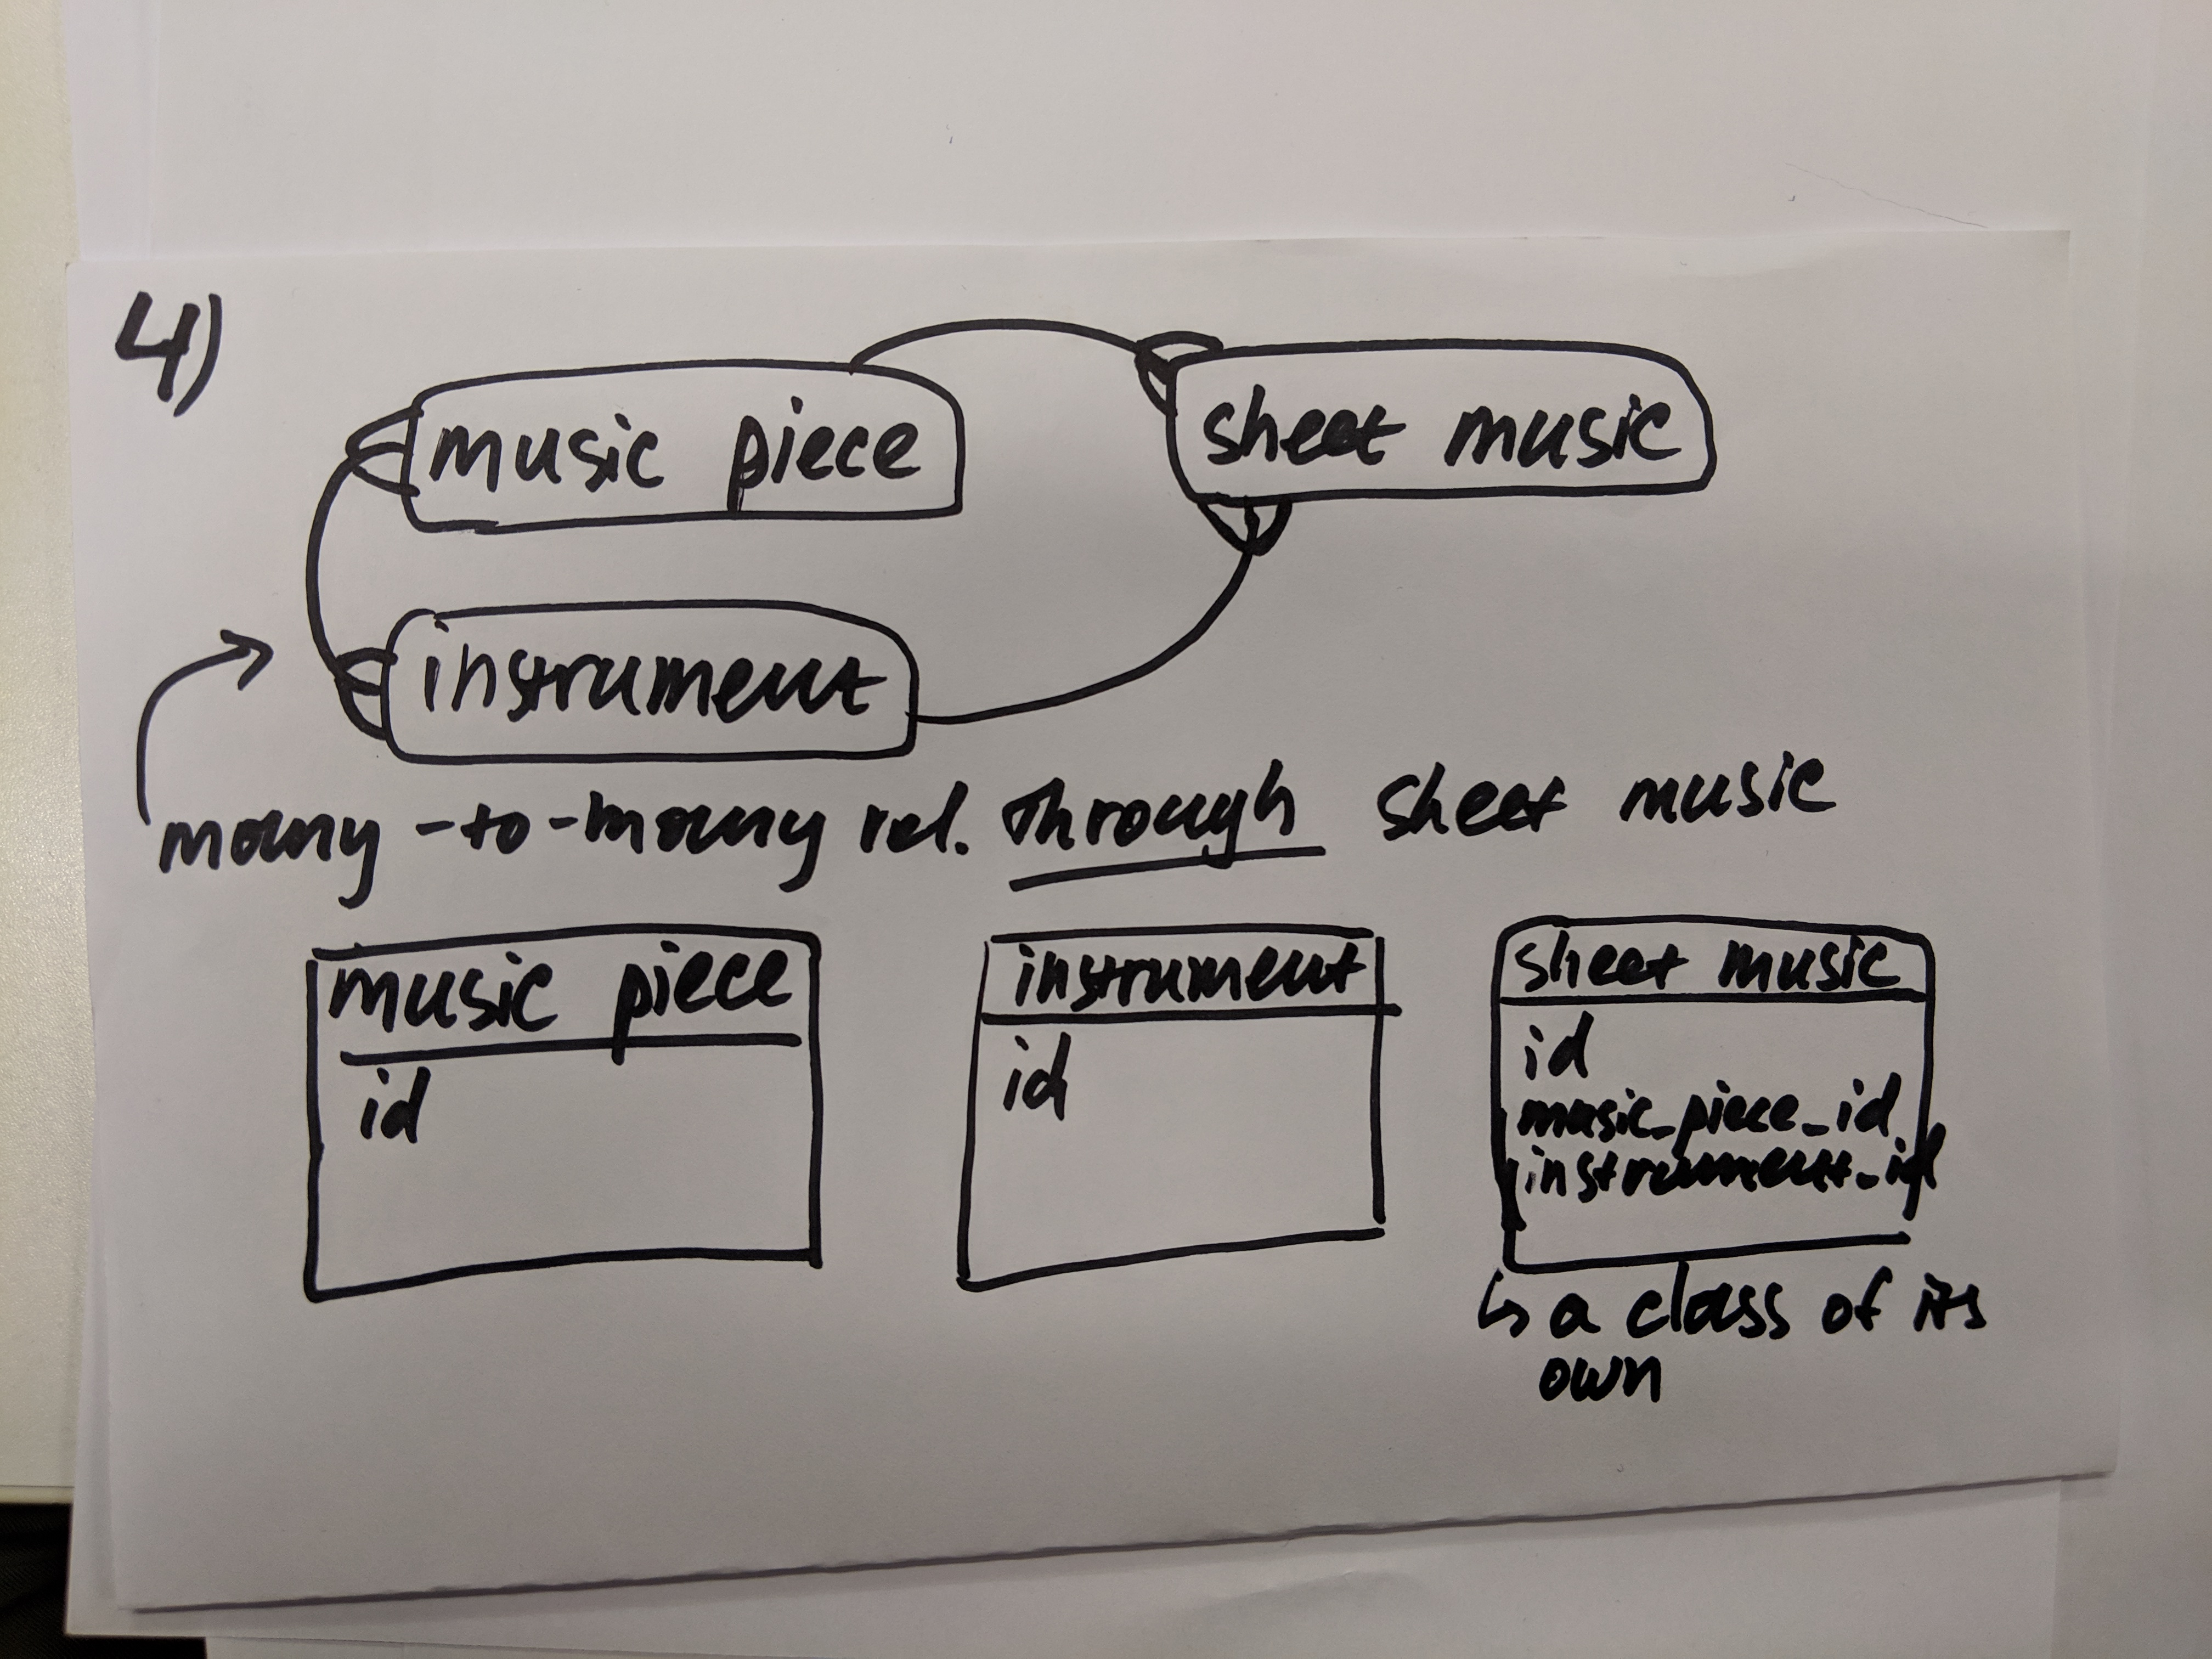 4)
music piece
sheet music
instrument
many-to-many rel. through sheet music
music piece
id
instrument
id
sheet music
id
music_piece_id
instrument_id
↳ a class of its
own